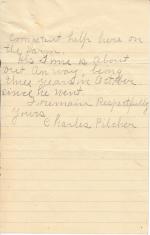 Competent help here on
the farm.
His time is about
out any way, being
three years in October
since he went
I remain Respectfully
Yours
Charles Pilcher